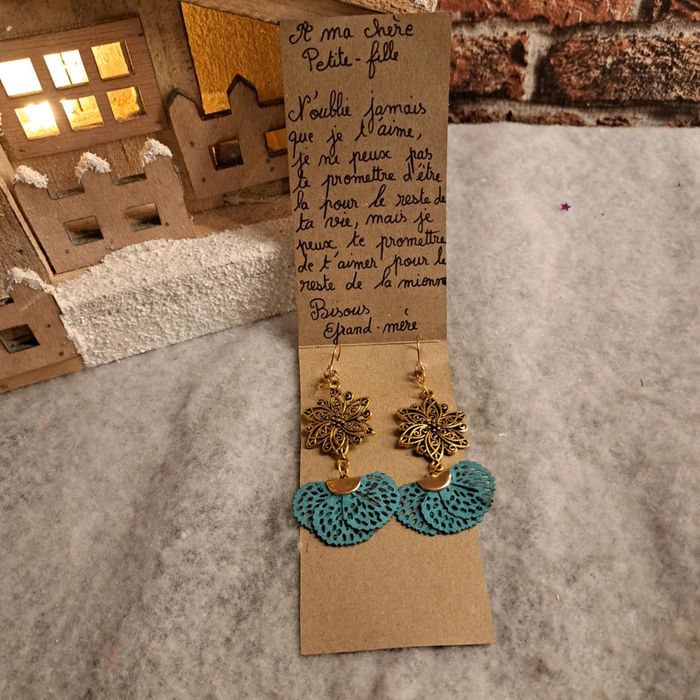 A ma chère
Petite-fille
N'oublie jamais
que je t'aime,
je ne peux pas
te promettre d'être
la pour le reste de
ta vie, mais je
peux te promettre
de t'aimer pour le
reste de la mienne
Bisous
Grand-mére